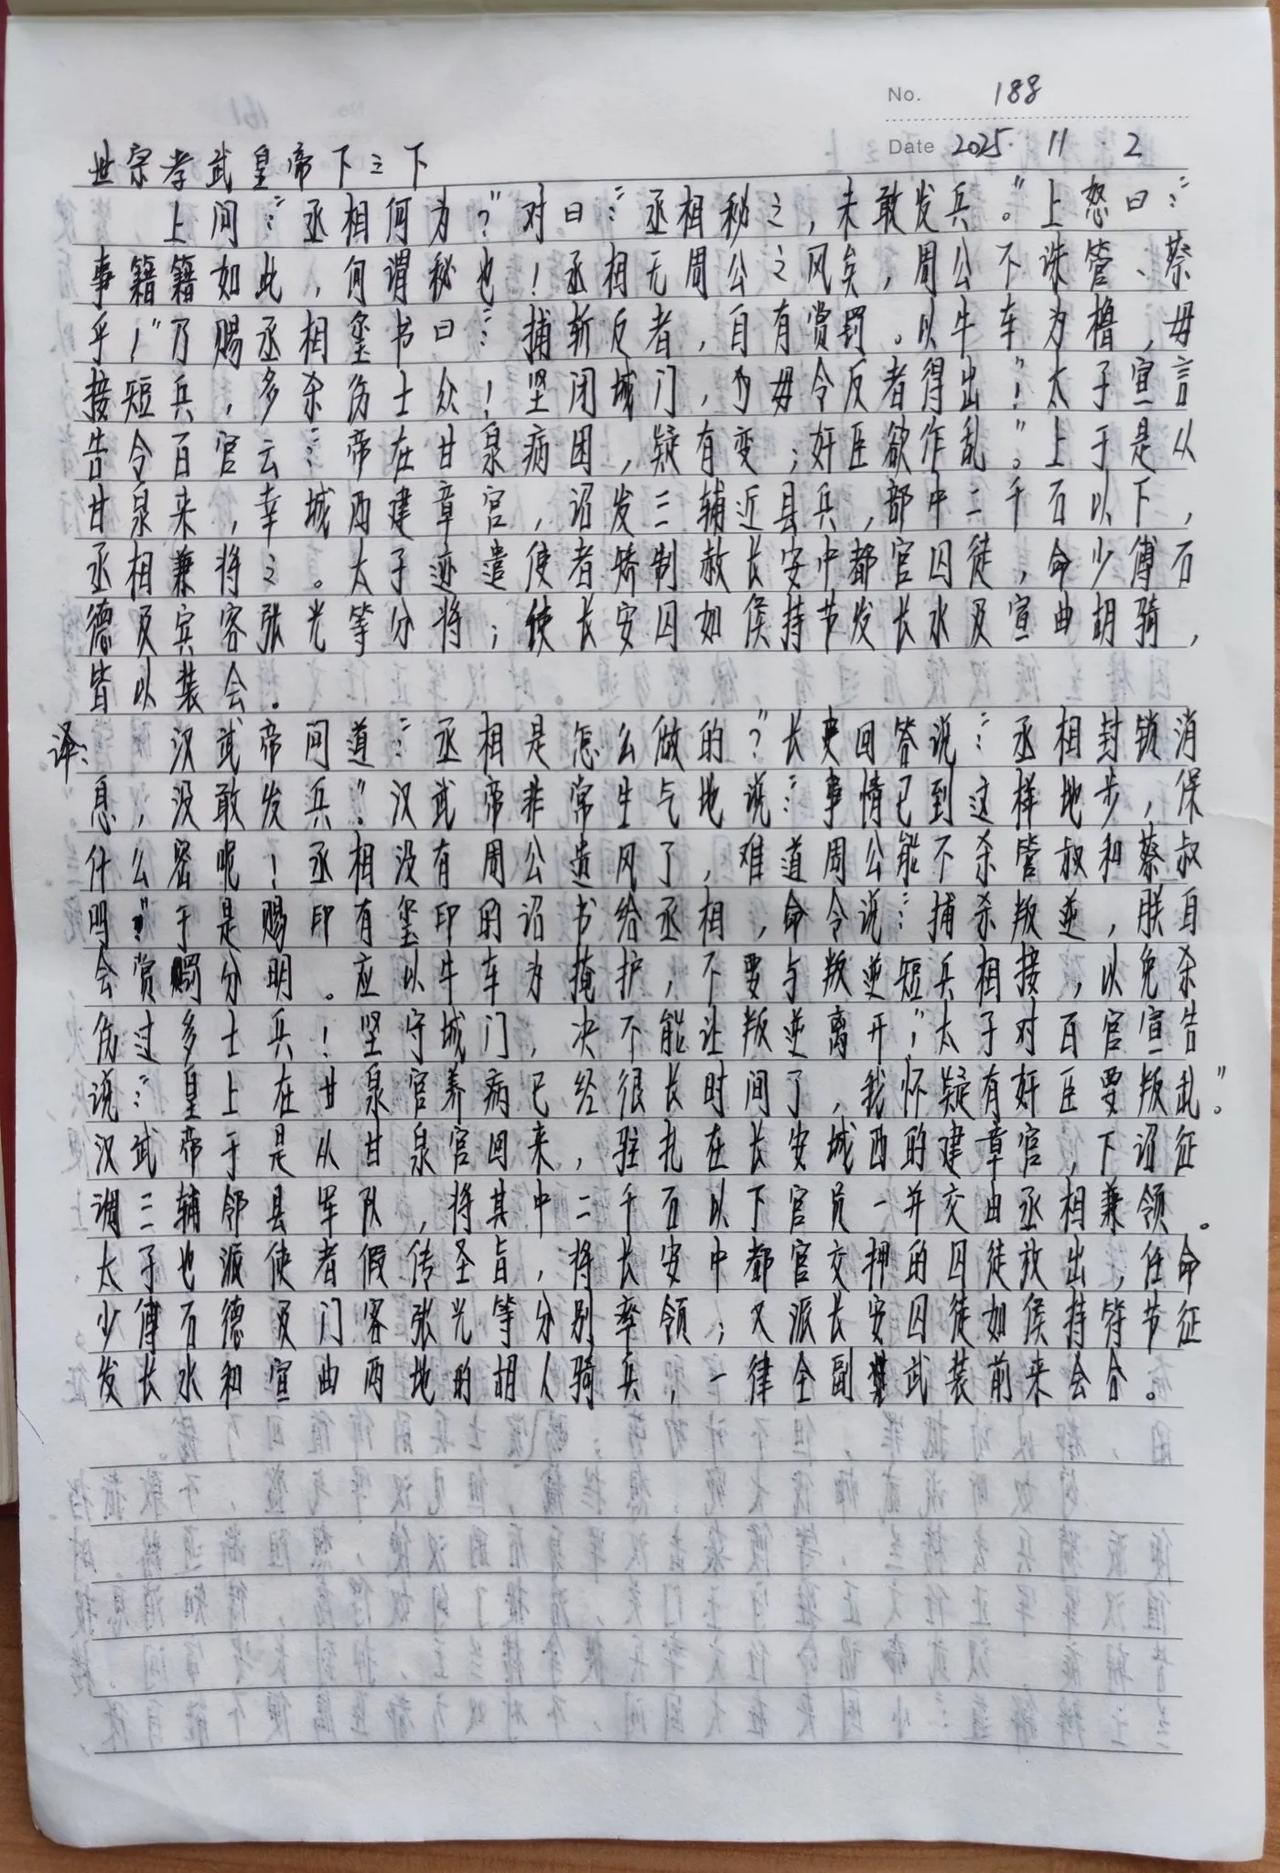 No. 188
Date 2025. 11 . 2
世宗孝武皇帝下之下
上问:“丞相何为?”对曰:“丞相秘之,未敢发兵。”上怒曰:“
事籍籍如此,何谓秘也!丞相无周公之风矣,周公不诛管、蔡
乎!”乃赐丞相玺书曰:“捕斩反者,自有赏罚。以牛车为橹,毋
接短兵,多杀伤士众!坚闭城门,毋令反者得出!”太子宣言
告令百官云:“帝在甘泉病困,疑有变;奸臣欲作乱。”上于是从
甘泉来,幸城西建章宫,诏发三辅近县兵,部中二千石以下,
丞相兼将之。太子亦遣使者矫制赦长安中都官囚徒,命少傅石
德及宾客张光等分将;使长安囚如侯持节发长水及宣曲胡骑,
皆以装会。
译: 汉武帝问道:“丞相是怎么做的?”长史回答说:“丞相封锁消
息,没敢发兵”汉武帝非常生气地说:“事情已到这样地步,保
什么密呢!丞相没有周公遗风了,难道周公能不杀管叔和蔡叔
吗”于是赐印有玺印的诏书给丞相,命令说:“捕杀叛逆,朕自
会赏罚分明。应以牛车为掩护,不要与叛逆短兵相接,以免杀
伤过多士兵!坚守城门,决不能让叛逆离开”,太子对百官宣告
说:“皇上在甘泉宫养病已经很长时间了,我怀疑有奸臣要叛乱。”
汉武帝于是从甘泉宫回来,驻扎在长安城西的建章宫,下诏征
调三辅邻县军队,将其中二千石以下官员一并交由丞相兼领。
太子也派使者假传圣旨,将长安中都官交押的囚徒放出,任命
少傅石德及门客张光等分别率领;又派长安囚徒如侯持符节征
发长水和宣曲两地的胡人骑兵,一律全副武装前来会合。